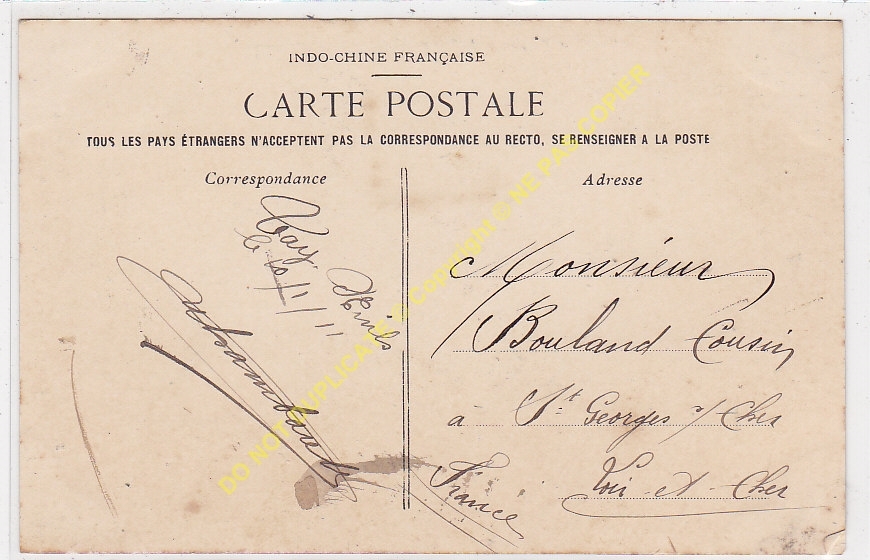 INDO-CHINE FRANÇAISE
CARTE POSTALE
TOUS LES PAYS ÉTRANGERS N'ACCEPTENT PAS LA CORRESPONDANCE AU RECTO, SE RENSEIGNER A LA POSTE
Correspondance
Adresse
Monsieur
Bouland Cousin
à St Georges s/ Cher
Loir-et-Cher
France
DO NOT DUPLICATE © Copyright © NE PAS COPIER